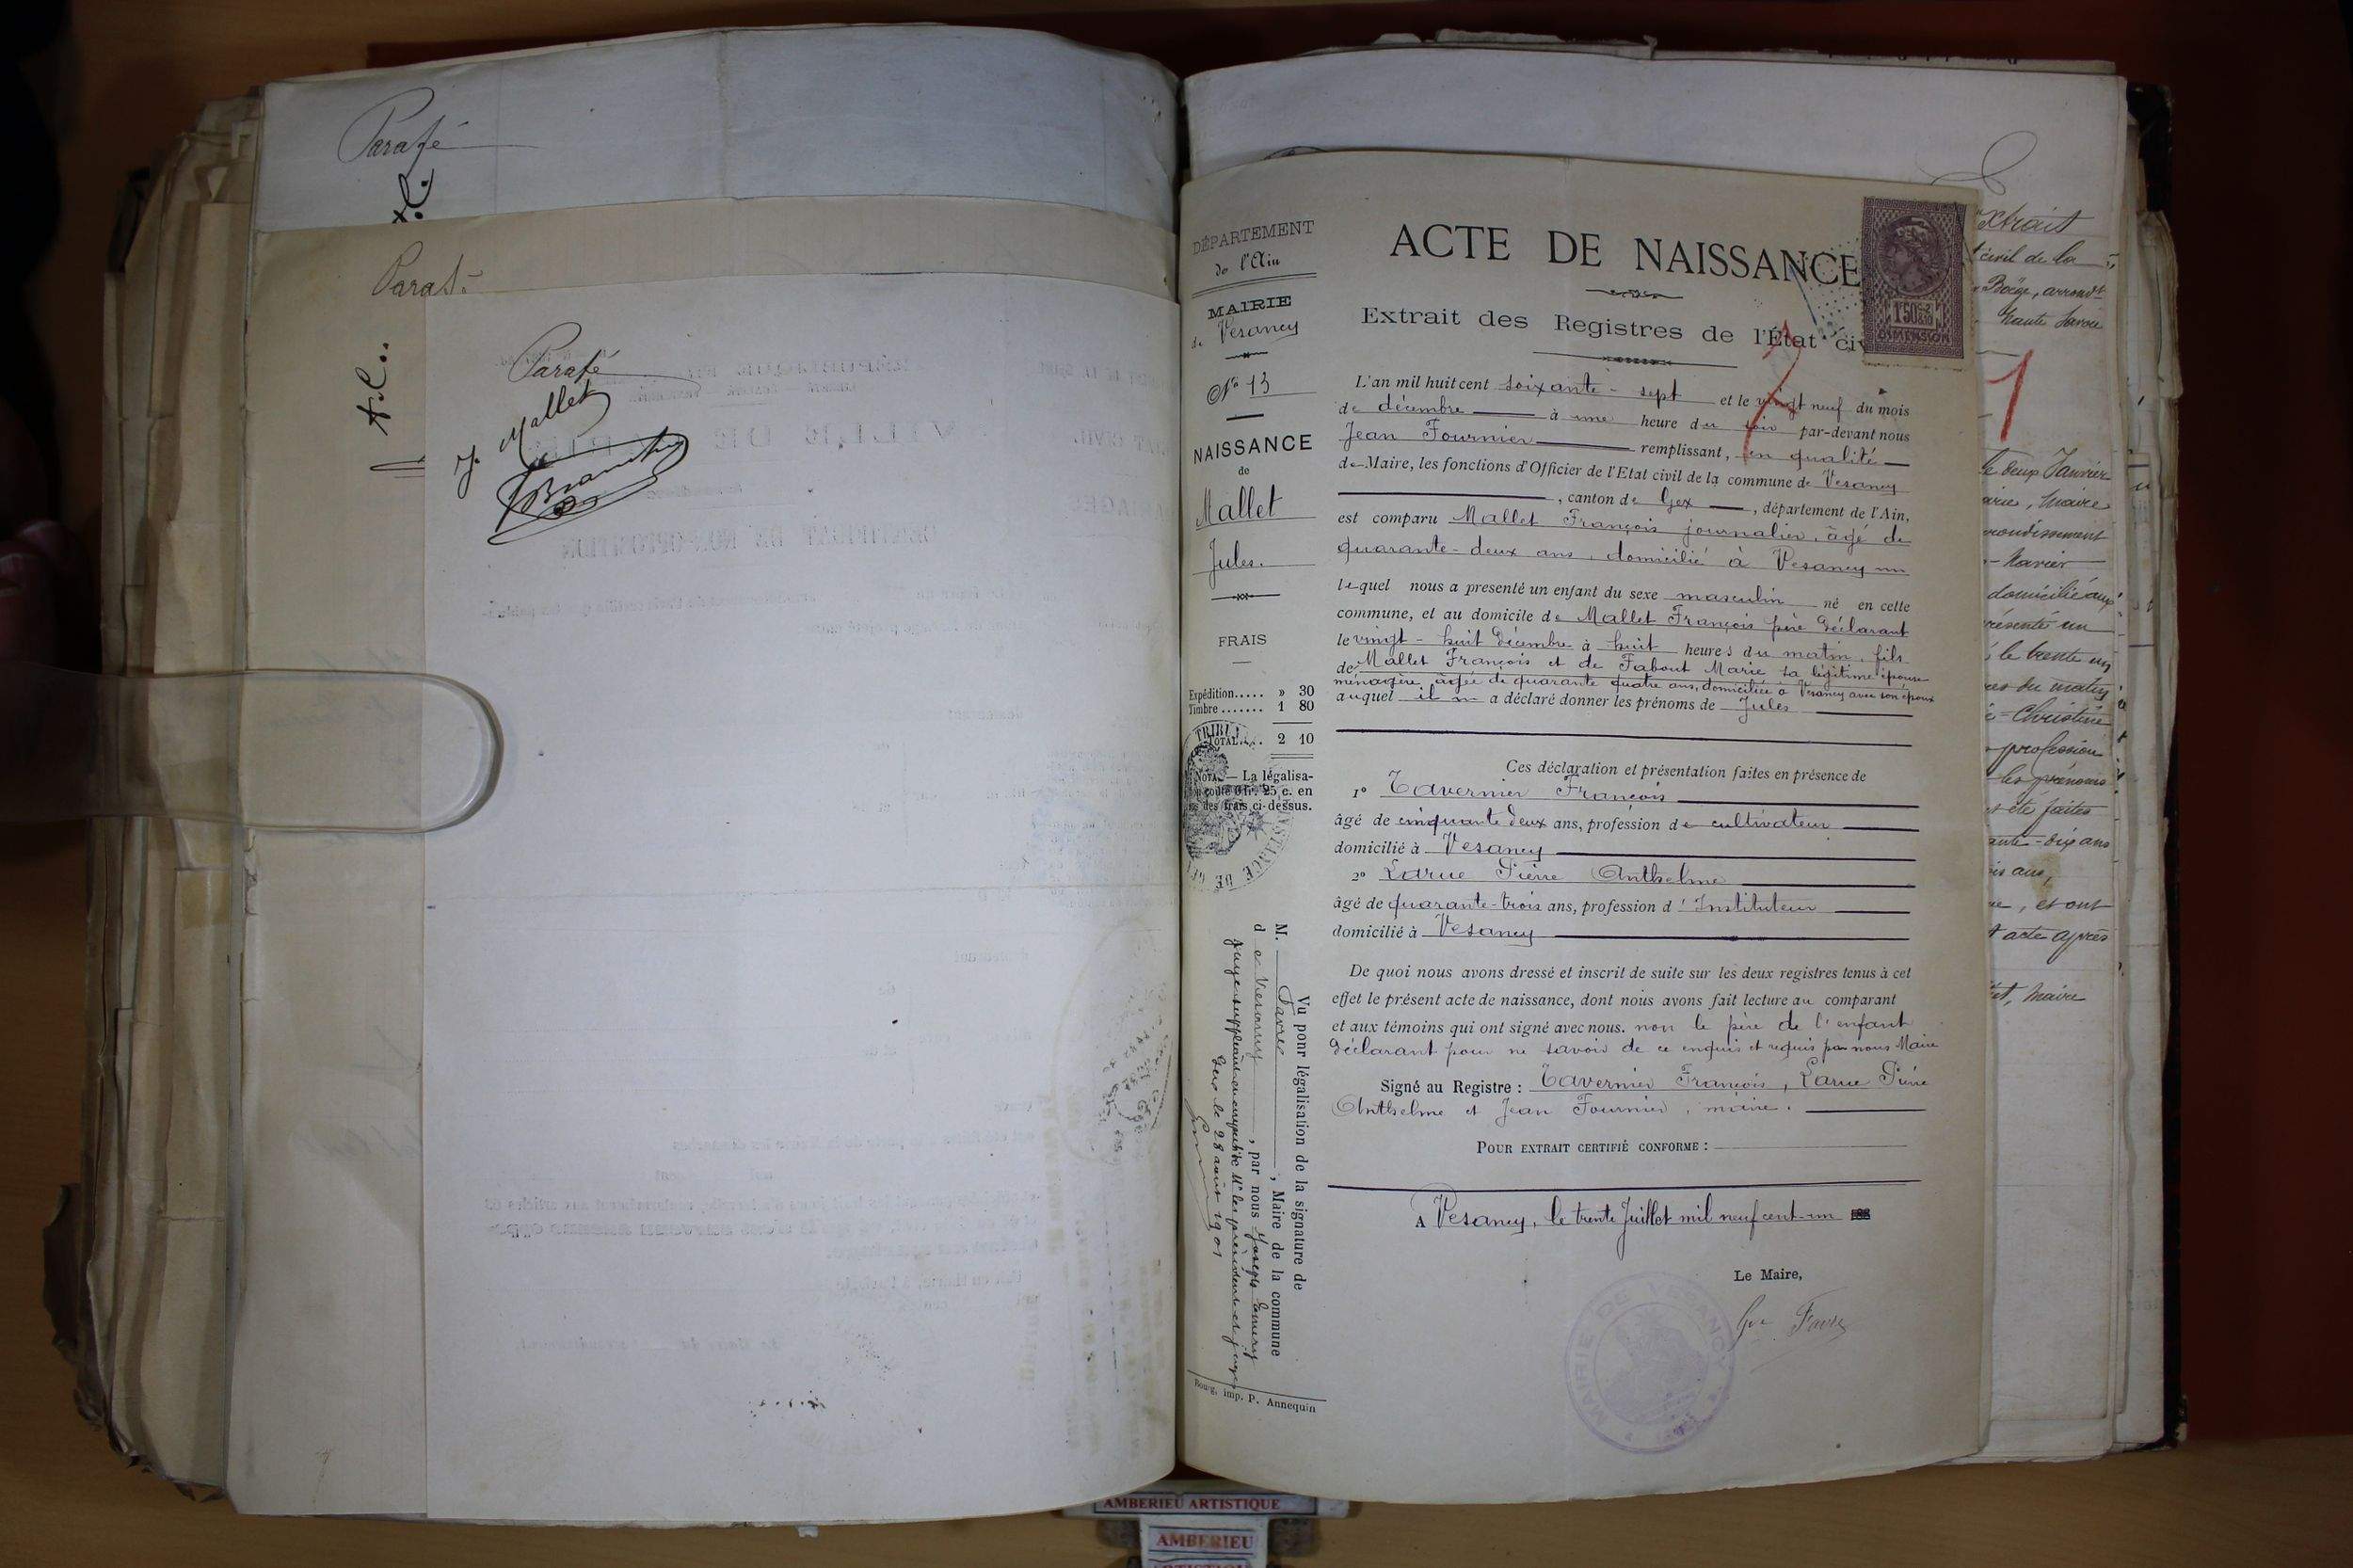 Parafé
A.C.
Parafé
J. Mallet
DÉPARTEMENT
de l'Ain
MAIRIE
de Vesancy
No 13
NAISSANCE
de
Mallet
Jules.
FRAIS
Expédition..... » 30
Timbre....... 1 80
TOTAL.... 2 10
NOTA.— La légalisa-
coûte 0 fr. 25 c. en
des frais ci-dessus.
Vu pour légalisation de la signature de
M. Favre, Maire de la commune
de Vesancy, par nous Joseph Emery
juge suppléant en empêcht de Mrs les président et juges
Gex le 28 août 1901
Bourg, imp. P. Annequin
ACTE DE NAISSANCE
Extrait des Registres de l'État civ
1F50c
DIMENSION
L'an mil huit cent soixante-sept et le vingt neuf du mois
de décembre à une heure du soir par-devant nous
Jean Fournier remplissant, en qualité
de Maire, les fonctions d'Officier de l'Etat civil de la commune de Vesancy
, canton de Gex, département de l'Ain,
est comparu Mallet François journalier, âgé de
quarante-deux ans, domicilié à Vesancy
lequel nous a presenté un enfant du sexe masculin né en cette
commune, et au domicile de Mallet François père déclarant
le vingt-huit décembre à huit heures du matin, fils
de Mallet François et de Fabout Marie sa légitime épouse
ménagère âgée de quarante quatre ans, domiciliée à Vesancy avec son époux
auquel il a déclaré donner les prénoms de Jules
Ces déclaration et présentation faites en présence de
1° Tavernier François
âgé de cinquante deux ans, profession de cultivateur
domicilié à Vesancy
2° Larue Pierre Anthelme
âgé de quarante-trois ans, profession d'Instituteur
domicilié à Vesancy
De quoi nous avons dressé et inscrit de suite sur les deux registres tenus à cet
effet le présent acte de naissance, dont nous avons fait lecture au comparant
et aux témoins qui ont signé avec nous. non le père de l'enfant
déclarant pour ne savoir de ce enquis et requis par nous Maire
Signé au Registre : Tavernier François, Larue Pierre
Anthelme et Jean Fournier, maire.
POUR EXTRAIT CERTIFIÉ CONFORME :
A Vesancy, le trente Juillet mil neuf cent-un
Le Maire,
Favre
MAIRIE DE
xtrait
civil de la
Boëge, arrondt
Haute Savoie
1
le deux Janvier
maire
rondissement
Xavier
domicilié aux
résenté un
le trente un
res du matin
Christine
profession
les prénoms
été faites
ante-dix ans
is ans,
et ont
acte après
maire
AMBERIEU ARTISTIQUE
AMBERIEU